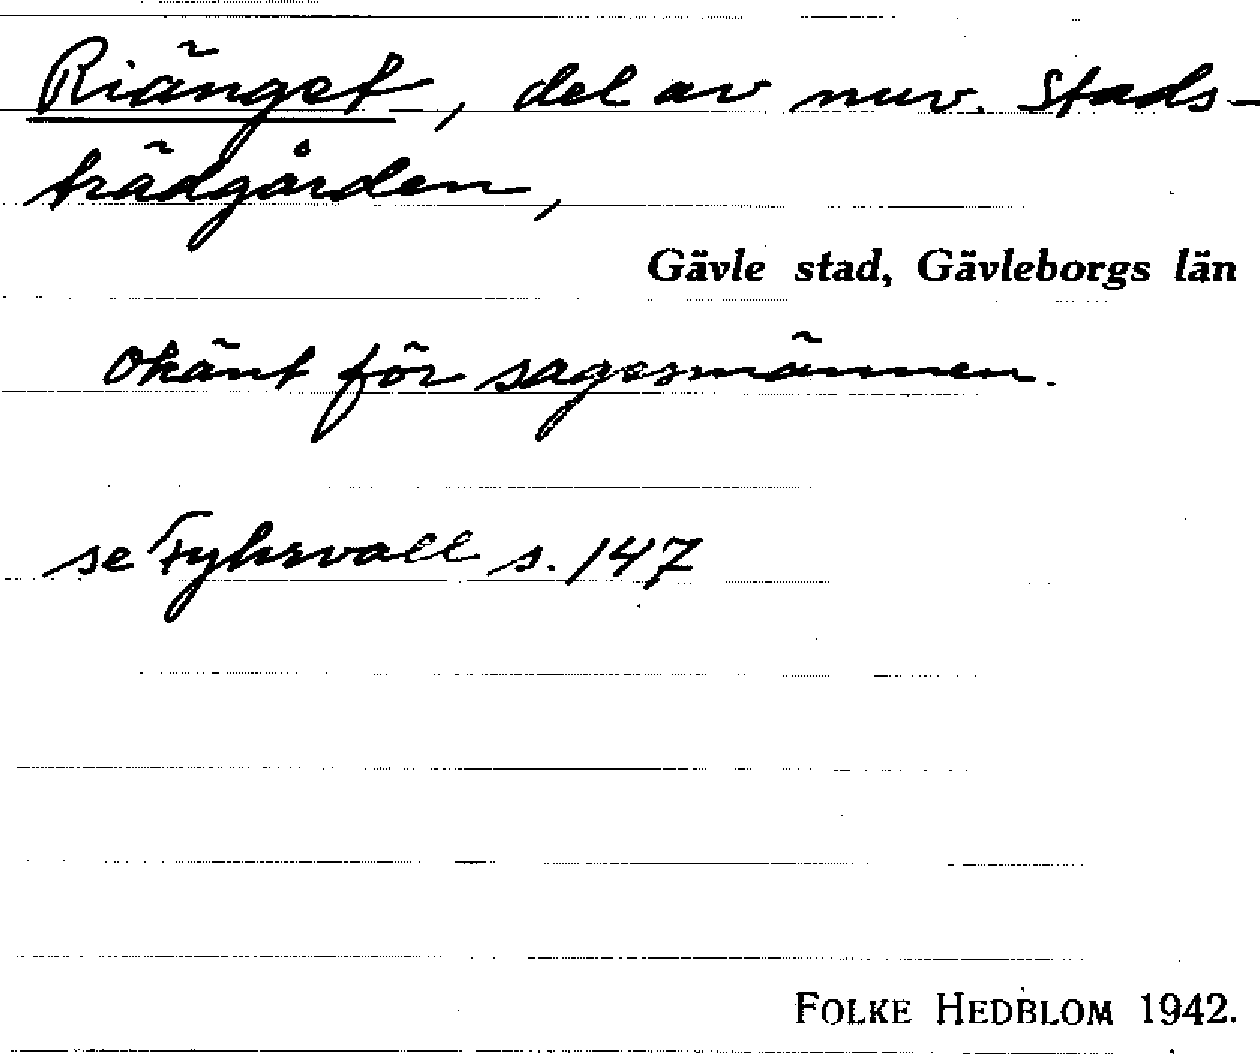 Riänget, del av nuv. Stads-
trädgården,
Gävle stad, Gävleborgs län
Okänt för sagesmännen.
se Fyhrvall s. 147
FOLKE HEDBLOM 1942.